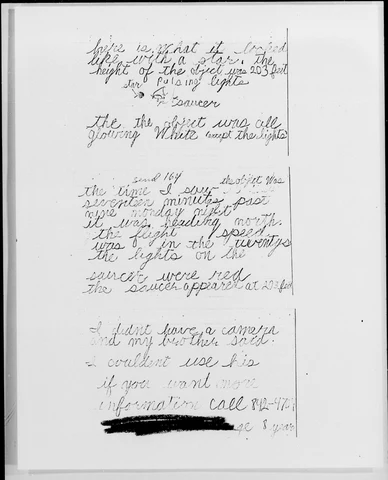 here is what it looked
like with a star. the
height of the object was 203 feet
star pulsing lights
saucer
the the object was all
glowing White except the lights
the time I saw the object was
seventen minutes past
nine monday night
it was heading north.
the flight speed
was in the twentys
the lights on the
saucer were red
the saucer appeared at 203 feet
I didnt have a camera
and my brother said
I couldent use his
if you want more
information call 842-
age 8 years